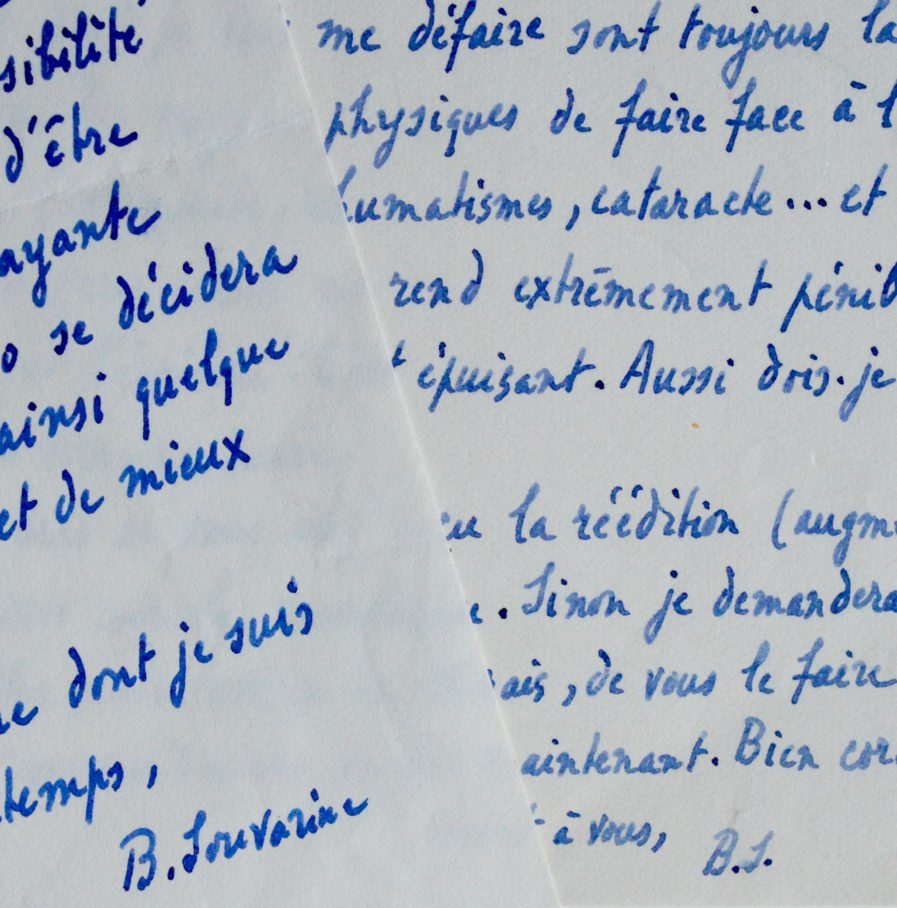 sibilité
d'être
ayante
o se décidera
ainsi quelque
et de mieux
dont je suis
temps,
B. Souvarine
me défaire sont toujours la
physiques de faire face à l
humatismes, cataracte... et
rend extrêmement pénib
t épuisant. Aussi dois-je
eu la réédition (augme
e. Sinon je demandera
ais, de vous le faire
aintenant. Bien cor
à vous,
B.S.